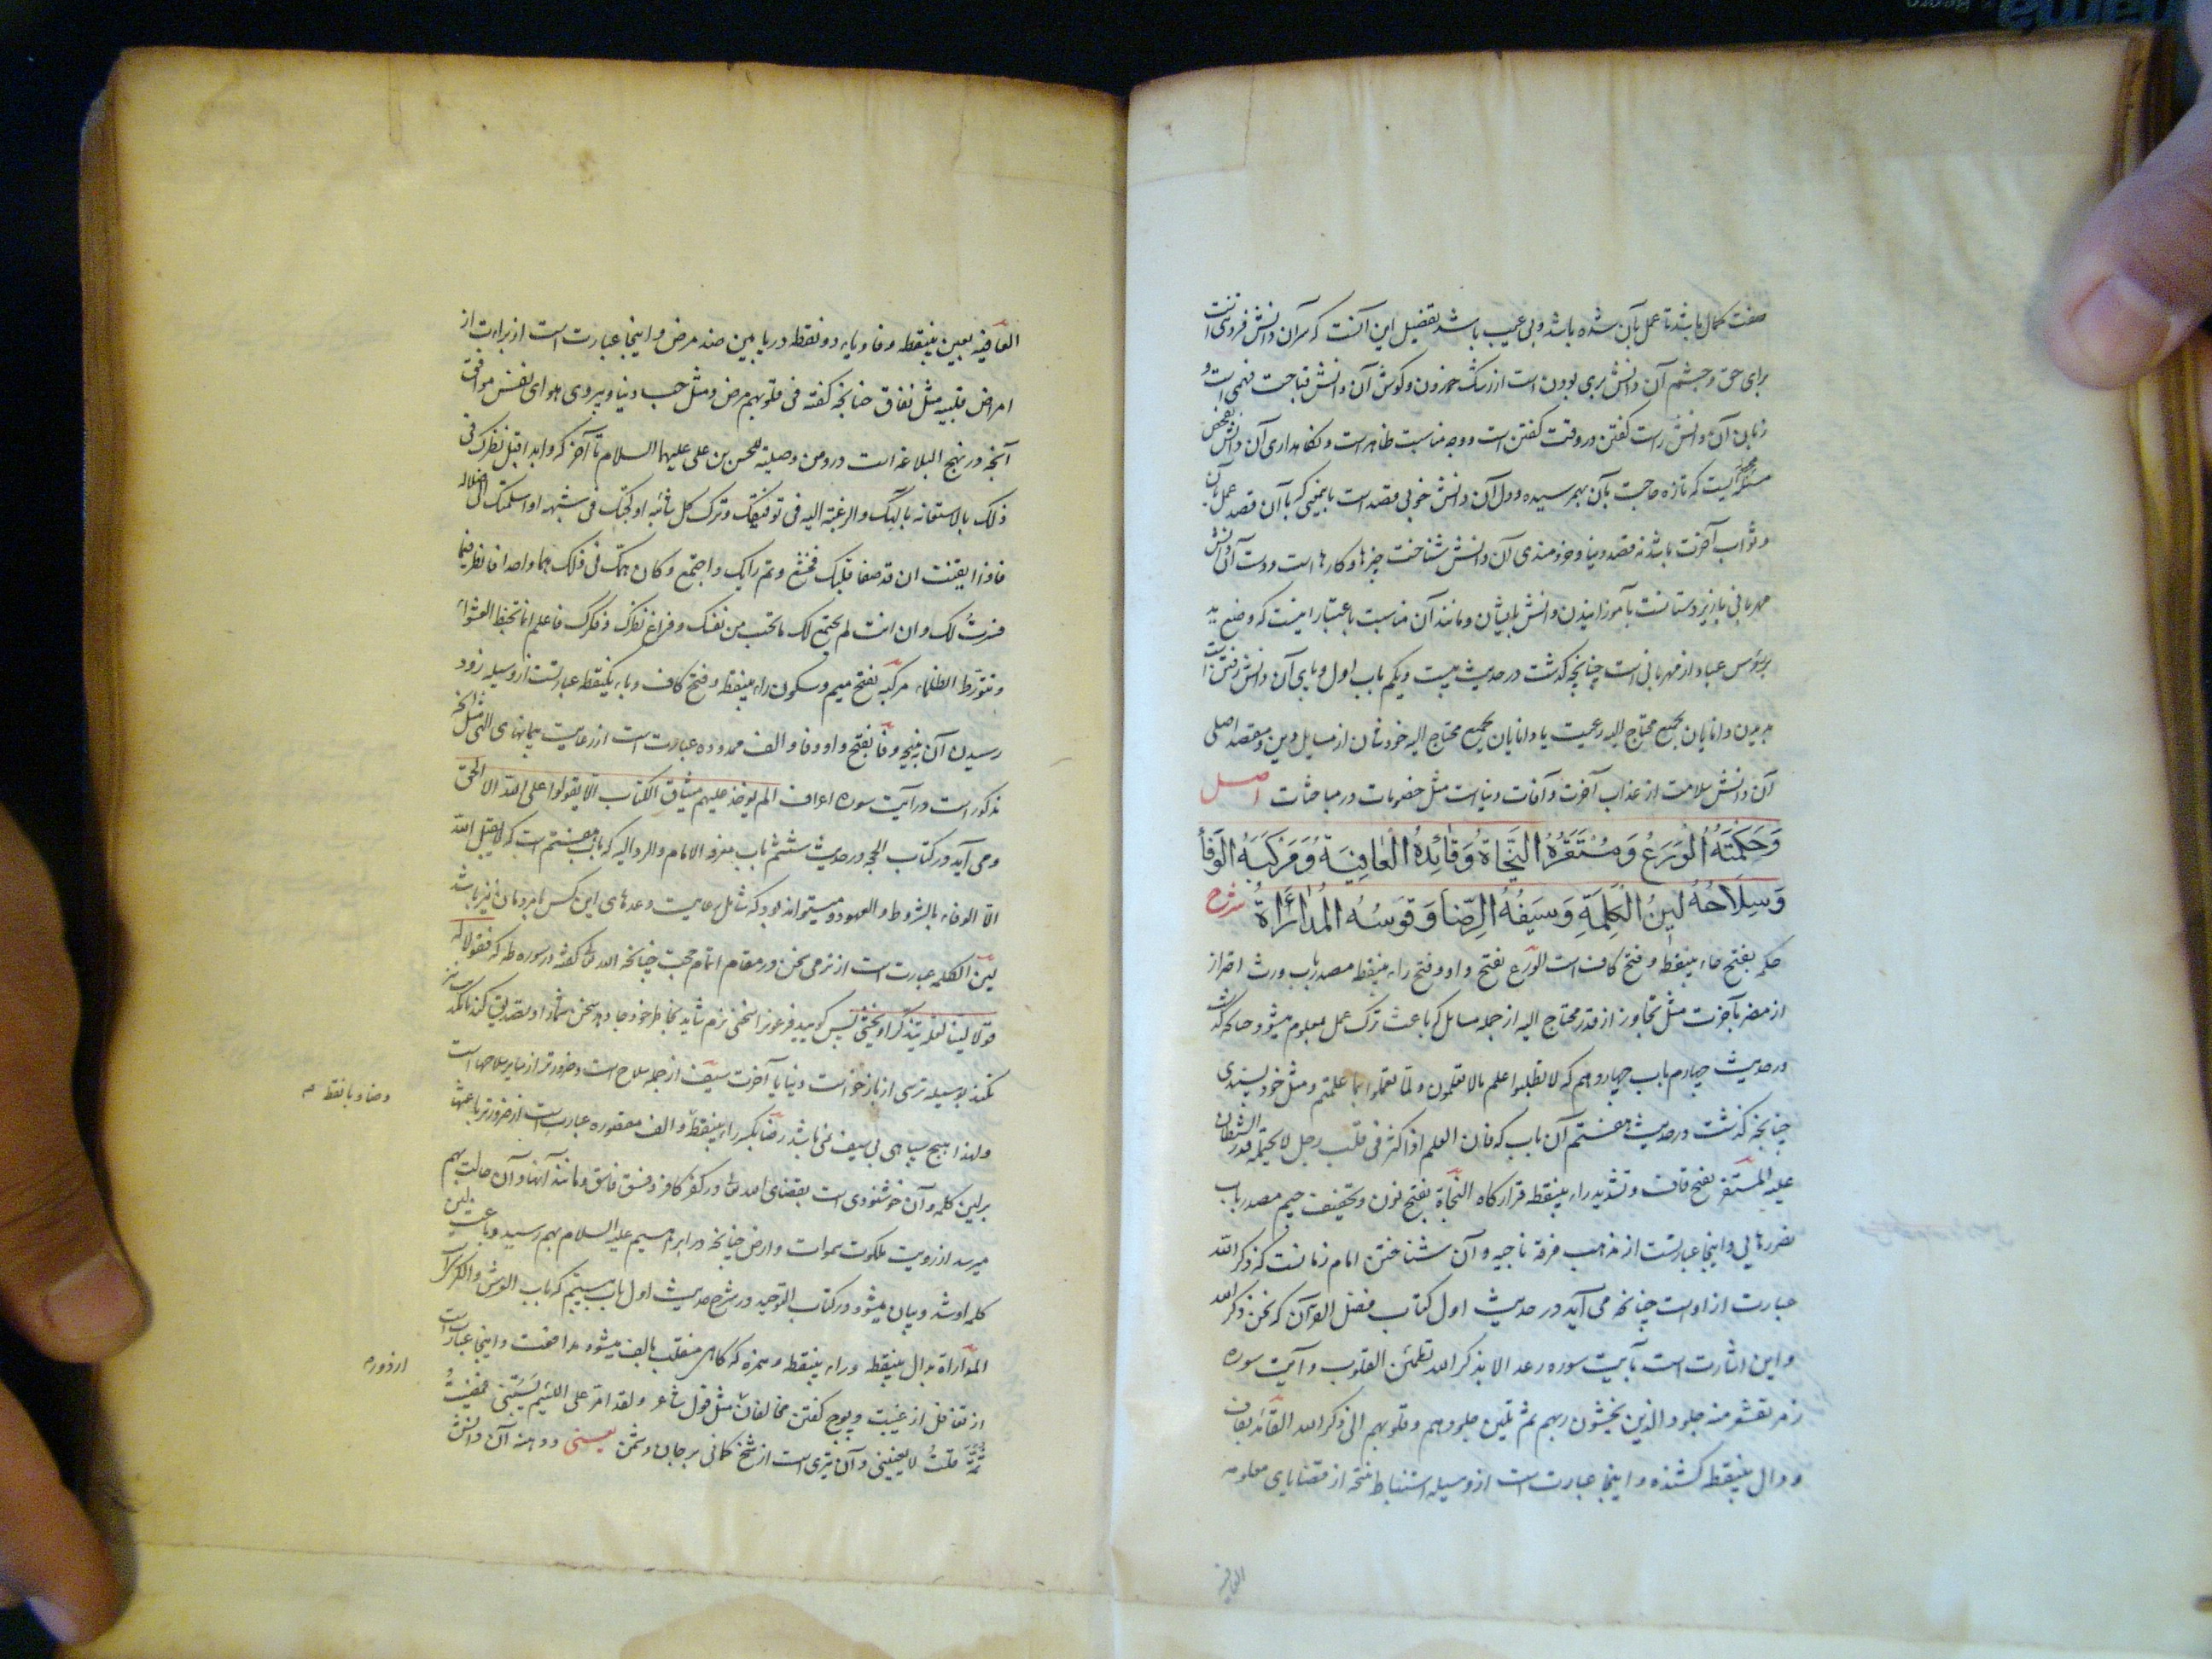 صفت کمال باشد تا عمل بآن شده باشد و بی عیب باشد تفصیل این آنست که سر آن دانش فروتنی است
برای حق و چشم آن دانش بری بودن است از رشک خوردن و گوش آن دانش قباحت فهمی است و
زبان آن دانش راست گفتن در وقت گفتن است و وجه مناسبت ظاهر است و نگاهداری آن دانش تفحص
مسئله ایست که تازه حاجت بآن بهم رسیده و دل آن دانش خوبی قصد است باینمعنی که بآن قصد عمل بآن
و ثواب آخرت باشد نه قصد دنیا و خردمندی آن دانش شناخت چیزها و کارها است و دست آن دانش
مهربانی با زیردستانست بآموزانیدن دانش بایشان و مانند آن مناسبت باعتبار اینست که وضع ید
بر رؤس عباد از مهربانی است چنانچه گذشت در حدیث بیست و یکم باب اول و پای آن دانش رفتن است
بدیدن دانایان بجمیع محتاج الیه رعیت یا دانایان بجمیع محتاج الیه خودشان از مسایل دین و مقصد اصلی
آن دانش سلامت از عذاب آخرت و آفات دنیا است مثل خصومات در مباحثات اصل
وَحِكْمَتُهُ الْوَرَعُ وَمُسْتَقَرُّهُ النَّجَاةُ وَقَائِدُهُ الْعَافِيَةُ وَمَرْكَبُهُ الْوَفَاءُ
وَسِلَاحُهُ لِينُ الْكَلِمَةِ وَسَيْفُهُ الرِّضَا وَقَوْسُهُ الْمُدَارَاةُ شرح
حکمه بفتح حاء بینقطه و فتح کاف است الورع بفتح واو و فتح راء بینقطه مصدر باب ورث احتراز
از مضر بآخرت مثل تجاوز از قدر محتاج الیه از جمله مسایل که باعث ترک عمل بمعلوم میشود چنانکه گذشت
در حدیث چهارم باب چهاردهم که لا تطلبوا علم ما لا تعلمون و لما تعملوا بما علمتم و مثل خودپسندی
چنانچه گذشت در حدیث هفتم آن باب که فان العلم اذا کثر فی قلب رجل لا یحتمله قدر الشیطان
علیه المستقر بفتح قاف و تشدید راء بینقطه قرارگاه النجاة بفتح نون و تخفیف جیم مصدر باب
نصر رهایی و اینجا عبارتست از مذهب فرقه ناجیه و آن شناختن امام زمانست که ذکر الله
عبارت از اوست چنانچه می آید در حدیث اول کتاب فضل القرآن که نحن ذکر الله
و این اشارت است بآیت سوره رعد الا بذکر الله تطمئن القلوب و آیت سوره
زمر تقشعر منه جلود الذین یخشون ربهم ثم تلین جلودهم و قلوبهم الی ذکر الله القائد بقاف
و دال بینقطه کشنده و اینجا عبارت است از وسیله استنباط نتیجه از قضایای معلومه
العافیة
العافیة بعین بینقطه و فا و یاء دو نقطه در پایین ضد مرض و اینجا عبارت است از براءت از
امراض قلبیه مثل نفاق چنانچه گفته فی قلوبهم مرض و مثل حب دنیا و پیروی هوای نفس موافق
آنچه در نهج البلاغه است در و من وصیته للحسن بن علی علیهما السلام تا آخر که و ابدأ قبل نظرک فی
ذلک بالاستعانة بالهک و الرغبة الیه فی توفیقک و ترک کل شائبة اولجتک فی شبهة او اسلمتک الی ضلالة
فاذا ایقنت ان قد صفا قلبک فخشع و تم رایک و اجتمع و کان همک فی ذلک هما واحدا فانظر فیما
فسرت لک و ان انت لم یجتمع لک ما تحب من نفسک و فراغ نظرک و فکرک فاعلم انما تخبط العشواء
و تتورط الظلماء مرکبه بفتح میم و سکون راء بینقطه و فتح کاف و باء یکنقطه عبارتست از وسیله زود
رسیدن آن به نتیجه وفا بفتح واو و فا و الف ممدوده عبارت است از رعایت پیمانهای الهی مثل آنچه
مذکور است در آیت سوره اعراف الم یؤخذ علیهم میثاق الکتاب الا یقولوا علی الله الا الحق
و می آید در کتاب الحجه در حدیث ششم باب معرفة الامام و الرد الیه که باب هفتم است که لا یقبل الله
الا الوفاء بالشروط و العهود و میتواند بود که شامل رعایت وعده های این کس بامردمان نیز باشد
لین الکلمه عبارت است از نرمی سخن در مقام اتمام حجت چنانچه الله تعالی گفته در سوره طه که فقولا له
قولا لینا لعله یتذکر او یخشی پس گویید فرعون را سخنی نرم شاید بخاطر خود جا دهد سخن شما را و تصدیق کند یا
نکند بوسیله ترسی از بازخواست دنیا یا آخرت سیف از جمله سلاح است و ضرورتر از سایر سلاحها است
ولهذا هیچ سپاهی بی سیف نمی باشد رضا بکسر راء بینقطه و الف مقصوره عبارت است از
بر لین کلمه و آن خوشنودی است بقضای الله تعالی در کفر کافر و فسق فاسق و مانند آنها و آن حالت بهم
میرسد از رویت ملکوت سموات و ارض چنانچه در ابراهیم علیه السلام بهم رسید و باعث لین
کلمه او شد و بیان میشود در کتاب التوحید در شرح حدیث اول باب بیستم که باب العرش و الکرسی است
المداراة بدال بینقطه و راء بینقطه و همزه که گاهی منقلب بالف میشود مدافعت و اینجا عبارت است
از تغافل از غیبت و پوچ گفتن مخالفان مثل قول شاعر و لقد امر علی اللئیم یسبنی فمضیت
ثمة قلت لا یعنینی و آن تیری است از شخ کمانی بر جان دشمن یعنی و دهنه آن دانش
و ضاد با نقطه